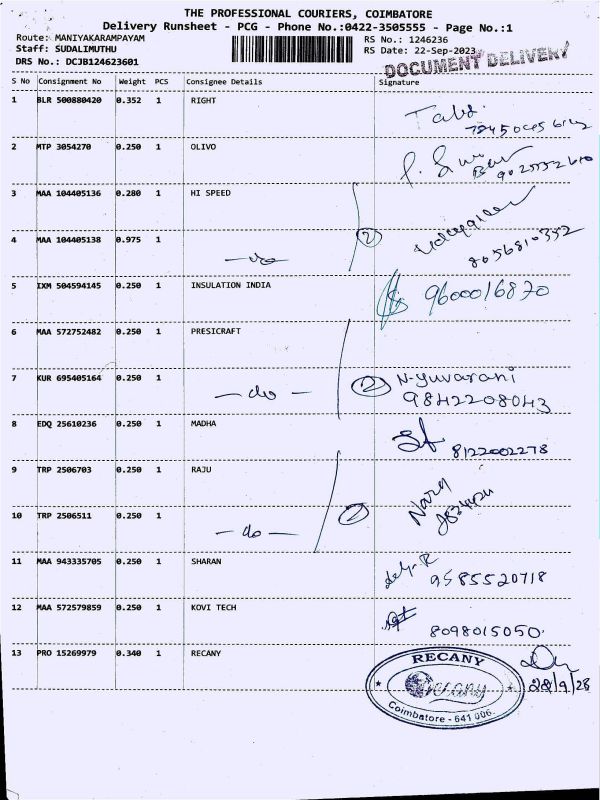 THE PROFESSIONAL COURIERS, COIMBATORE
Delivery Runsheet - PCG - Phone No.:0422-3505555 - Page No.:1
Route: MANIYAKARAMPAYAM RS No.: 1246236
Staff: SUDALIMUTHU RS Date: 22-Sep-2023
DRS No.: DCJB124623601 DOCUMENT DELIVERY
S No Consignment No Weight PCS Consignee Details Signature
1 BLR 500880420 0.352 1 RIGHT
2 MTP 3054270 0.250 1 OLIVO
3 MAA 104405136 0.280 1 HI SPEED
4 MAA 104405138 0.975 1 — do — 2 8056810352
5 IXM 504594145 0.250 1 INSULATION INDIA 9600016870
6 MAA 572752482 0.250 1 PRESICRAFT
7 KUR 695405164 0.250 1 — do — 2 N-Yuvarani
9842208043
8 EDQ 25610236 0.250 1 MADHA 8122002278
9 TRP 2506703 0.250 1 RAJU
10 TRP 2506511 0.250 1 — do — 2
11 MAA 943335705 0.250 1 SHARAN 9585520718
12 MAA 572579859 0.250 1 KOVI TECH 8098015050.
13 PRO 15269979 0.340 1 RECANY
RECANY
Recany
Coimbatore - 641 006.
28/9/23